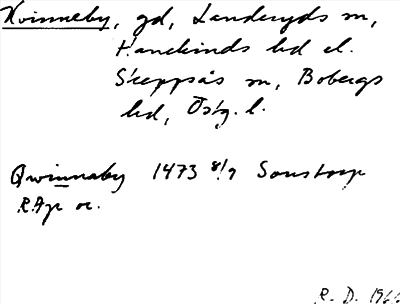 Kvinneby, gd, Landeryds sn,
Hanekinds hd el.
Skeppsås sn, Bobergs
hd, Östg. l.
Qwinnaby 1473 8/9 Sonstorp
RAp or.
R. D. 196